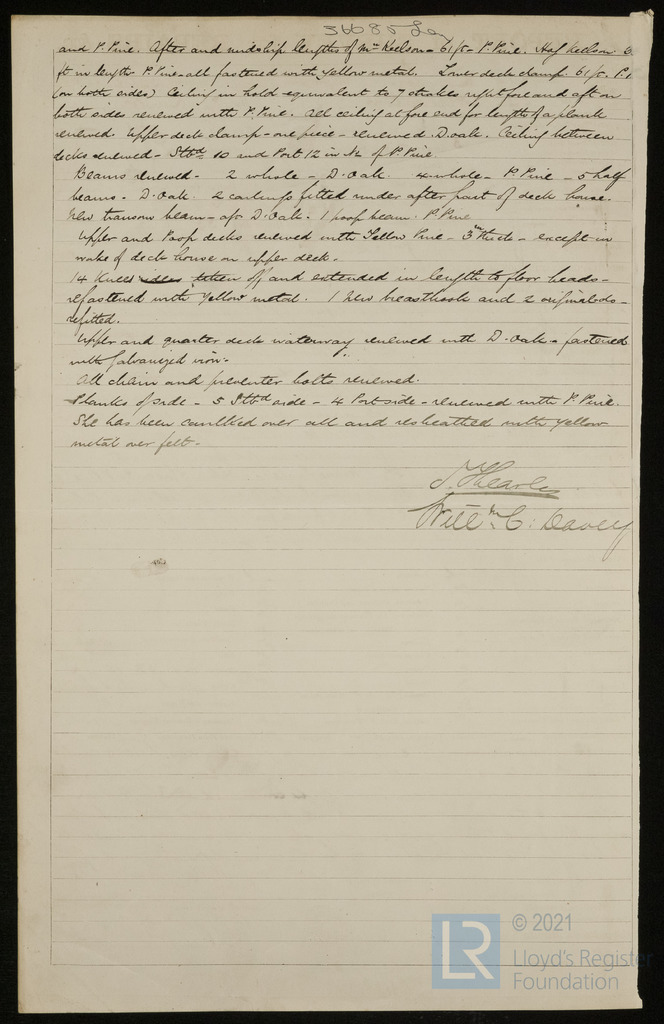 36685 Lon
and P. Pine. After and midship lengths of Mn Keelson - 61/5 - P. Pine. Half Keelson 6
ft in length P. Pine - all fastened with yellow metal. Lower deck clamp 61/5. P. P
(on both sides) Ceiling in hold equivalent to 7 strakes right fore and aft on
both sides renewed with P. Pine. All ceiling at fore end for length of a plank
renewed. Upper deck clamp - one piece - renewed D. oak. Ceiling between
decks renewed - Stbd 10 and Port 12 in No of P. Pine.
Beams renewed - 2 whole - D. Oak. 4 whole - P. Pine - 5 half
beams - D. Oak. 2 carlings fitted under after part of deck house.
New transom beam - aft D. Oak. 1 poop beam. P. Pine
Upper and Poop decks renewed with Yellow Pine - 3in thick - except in
wake of deck house on upper deck.
14 Knees taken off and extended in length to floor heads -
refastened with yellow metal. 1 New breasthook and 2 original do -
refitted.
Upper and quarter deck waterway renewed with D. Oak - fastened
with Galvanized iron.
All chain and preventer bolts renewed.
Planks of side - 5 Stbd side - 4 Port side - renewed with P. Pine.
She has been caulked over all and resheathed with yellow
metal over felt.
Willm C. Davey
LR
© 2021
Lloyd's Register
Foundation